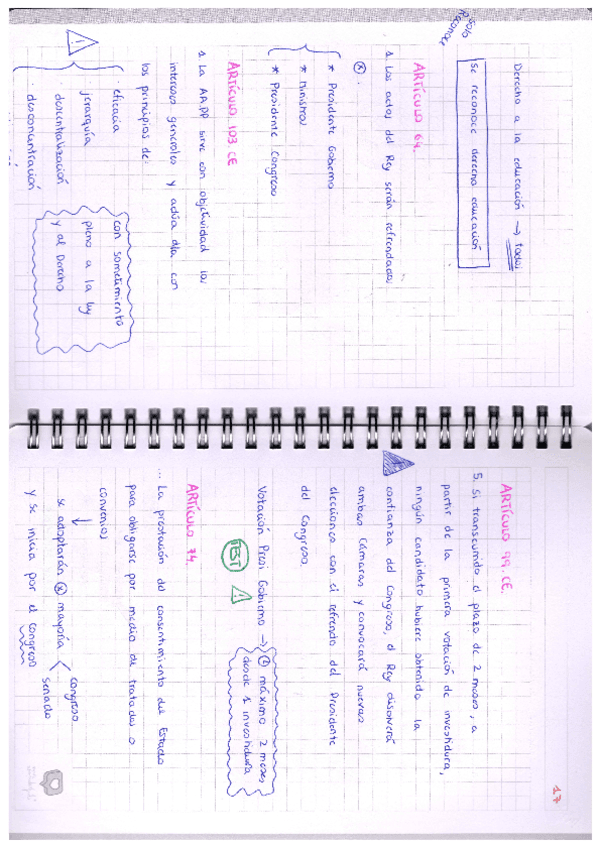 Derecho a la educación → todos
Solo
Reconoce
se reconoce derecho educación
ARTÍCULO 64.
1. Los actos del Rey serán refrendados
* Presidente Gobierno
* Ministros
* Presidente Congreso
ARTÍCULO 103 CE
1. La AAPP sirve con objetividad los
intereses generales y actúa con
los principios de:
· eficacia
· jerarquía
· descentralización
· desconcentración
con sometimiento
pleno a la ley
y al Derecho
17
ARTÍCULO 99. CE.
5. Si transcurrido el plazo de 2 meses, a
partir de la primera votación de investidura,
ningún candidato hubiere obtenido la
confianza del Congreso, el Rey disolverá
ambas Cámaras y convocará nuevas
elecciones con el refrendo del Presidente
del Congreso.
Votación Presi Gobierno → máximo 2 meses
desde 1 investidura
TEST
ARTÍCULO 74.
... La prestación del consentimiento del Estado
para obligarse por medio de tratados o
convenios
se adoptarán mayoría < congreso
senado
y se inicia por el congreso